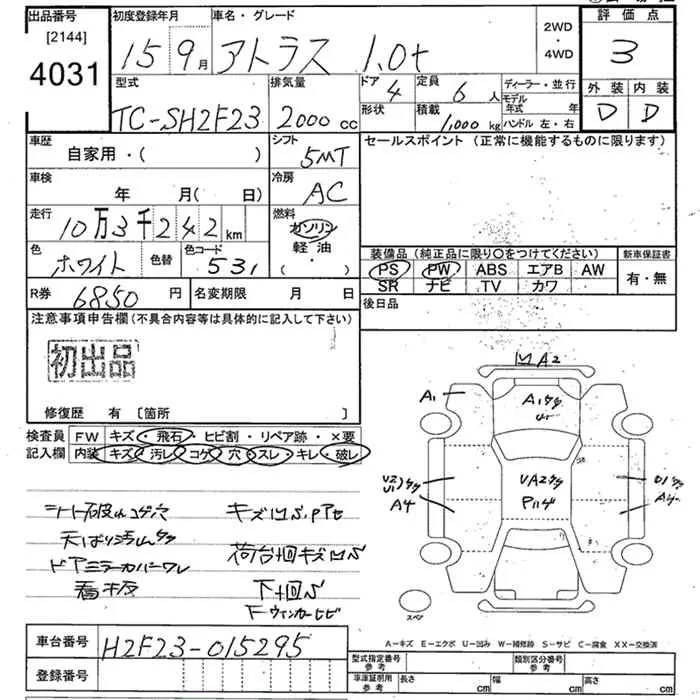 出品番号
[2144]
4031
初度登録年月
15 9月
車名・グレード
アトラス 1.0t
2WD
・
4WD
評価点
3
外装 内装
D D
型式
TC-SH2F23
排気量
2000 cc
ドア 4
形状
定員 6 人
積載 1,000 kg
ディーラー・並行
モデル年式 年
ハンドル 左・右
車歴
自家用・( )
シフト
5MT
セールスポイント (正常に機能するものに限ります)
車検
年 月( 日)
冷房
AC
走行
10万3千242 km
燃料
ガソリン
軽油
( ・ )
色
ホワイト
色替
色コード
531
装備品 (純正品に限り○をつけてください)
PS PW ABS エアB AW
SR ナビ TV カワ
新車保証書
有・無
R券
6850 円
名変期限 月 日
後日品
注意事項申告欄(不具合内容等は具体的に記入して下さい)
初出品
修復歴 有 [箇所 ]
検査員
記入欄
FW キズ・飛石・ヒビ割・リペア跡・×要
内装 キズ・汚レ・コゲ・穴・スレ・キレ・破レ
シート破れコゲ穴
天ばり汚れ
ドアミラーカバーワレ
看板
キズ凹
荷台+回キズ凹
下+回
F ウィンカーヒビ
A2
A1
A1
U2
U1
A4
UA2
A4
スペア
A-キズ E-エクボ U-凹み W-補修跡 S-サビ C-腐食 XX-交換済
車台番号
H2F23-015295
登録番号
型式指定番号
参考
類別区分番号
参考
車庫証明用
参考
長さ cm 幅 cm 高さ cm